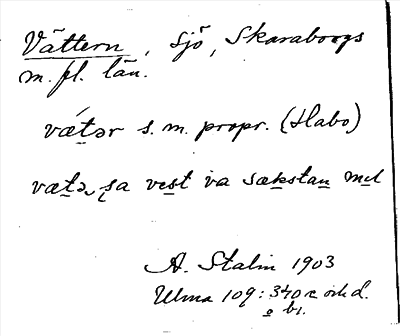 Vättern, sjö, Skaraborgs
m. fl. län.
vǽtər s. m. propr. (Habo)
vætə sa vest va sækstan mil
A. Stalin 1903
Ulma 109:340 c och d.
o b1.